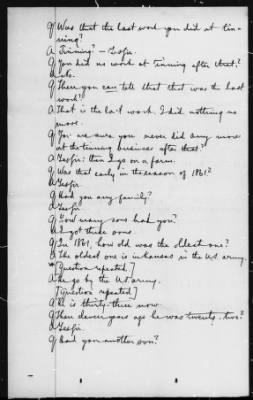 Q Was that the last work you did at tin=
ning?
A Tinning? – Yessir.
Q You did no work at Tinning after that?
A No.
Q Then you can tell that that was the last
work?
A That is the last work. I did nothing no
more.
Q You are sure you never did any more
at the tinning business after that?
A Yessir: then I go on a farm.
Q Was that early in the season of 1861?
A Yessir.
Q Had you any family?
A Yessir
Q How many sons had you?
A I got three sons.
Q In 1861, how old was the oldest one?
A The oldest one is in Kansas in the U.S. army.
[Question repeated]
A He go by the U.S. army.
[Question repeated]
A He is thirty-three now
Q Then eleven years ago he was twenty-two?
A Yessir.
Q Had you another son?